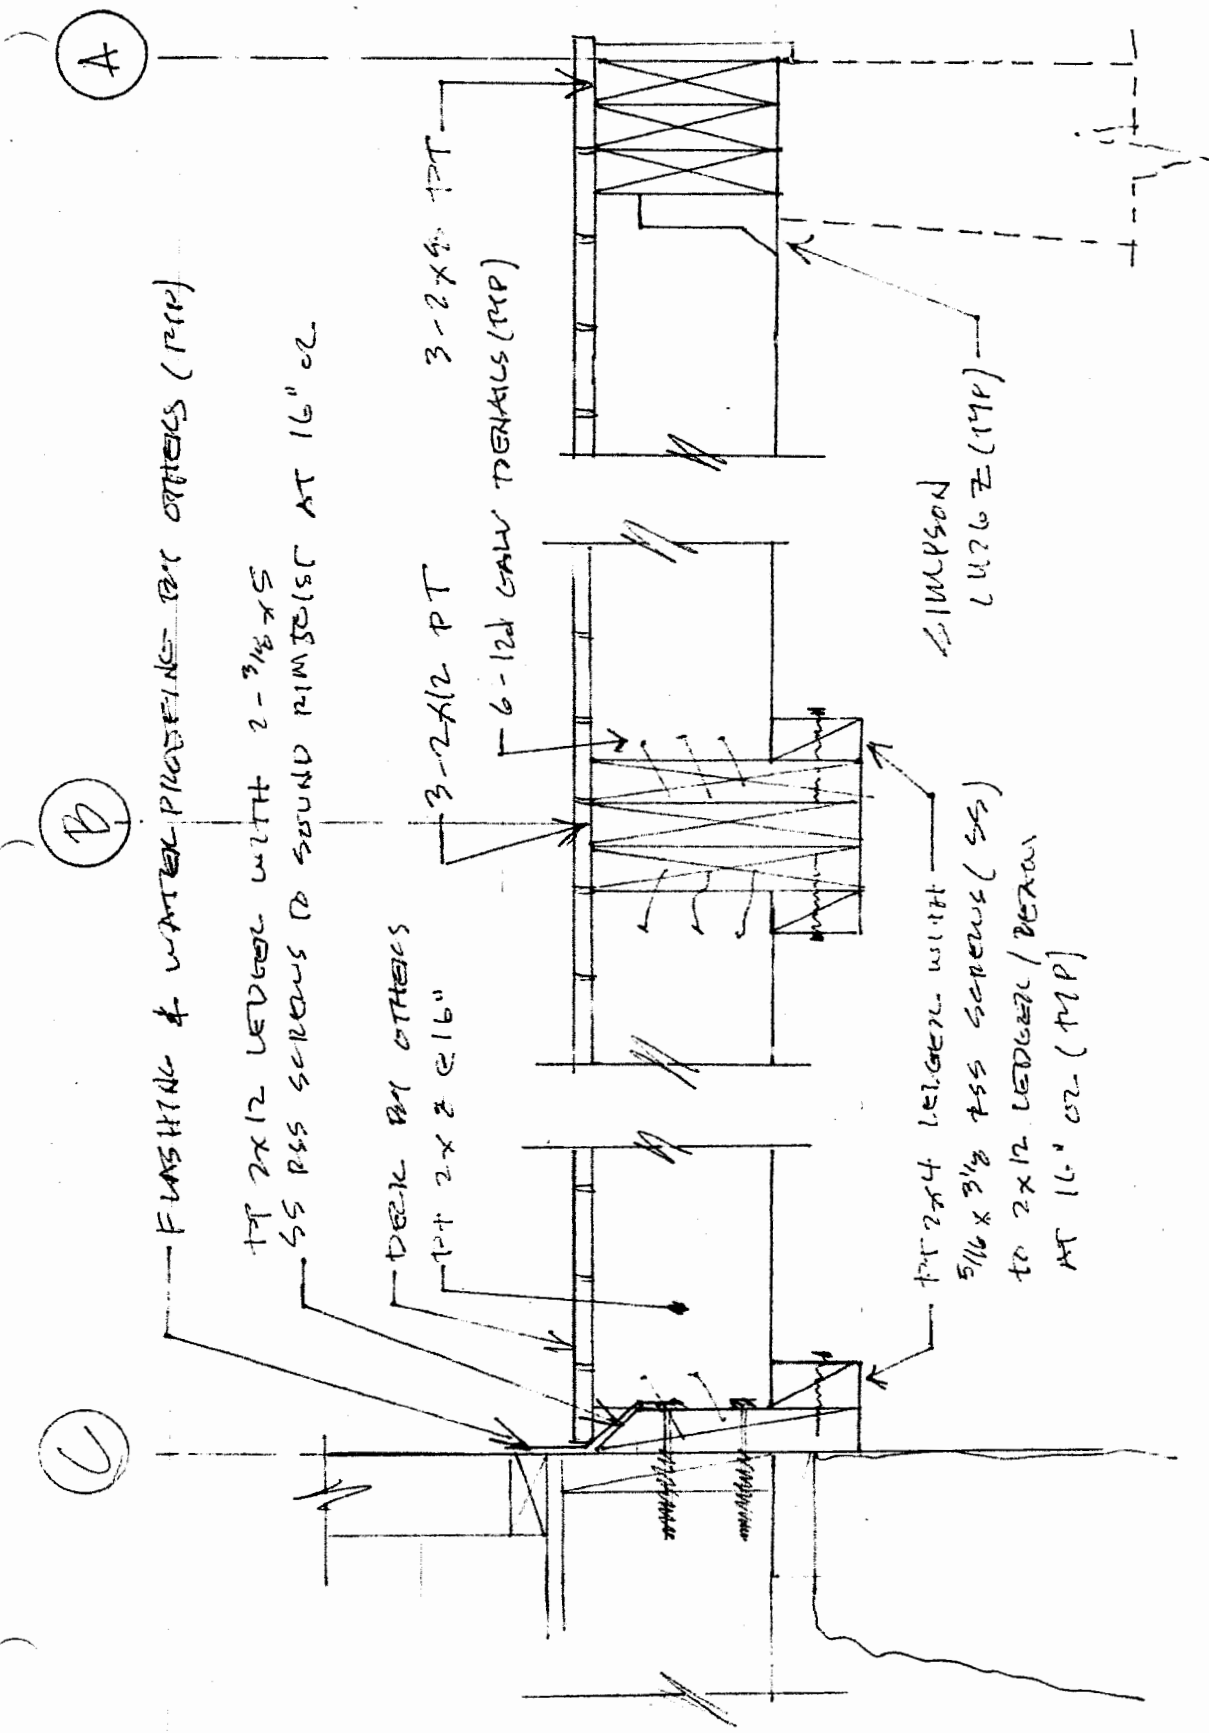 A
B
C
FLASHING & WATERPROOFING BY OTHERS (TYP)
PT 2x12 LEDGER WITH 2-3/8x5
SS RSS SCREWS TO SOUND RIMJOIST AT 16" oc
DECK BY OTHERS
PT 2x8 @ 16"
3-2x12 PT
6-12d GALV TOENAILS (TYP)
3-2x8 PT
PT 2x4 LEDGER WITH
5/16 x 3 1/8 RSS SCREWS (SS)
to 2x12 LEDGER / BEAM
AT 16" oc (TYP)
SIMPSON
LU26 Z (TYP)